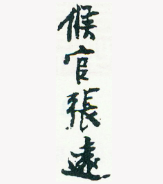 候官張遠